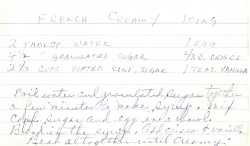 French Creamy Icing
2 Tablsp Water 1 Egg
4½ " Granulated Sugar 2/3 C. Crisco
2 1/3 Cups Sifted Conf. Sugar 1 Teas. Vanilla
Boil water and granulated sugar together
a few minutes to make syrup. Mix
Conf. Sugar and egg in a bowl.
Blend in the syrup. Add crisco & vanilla
Beat all together until creamy.